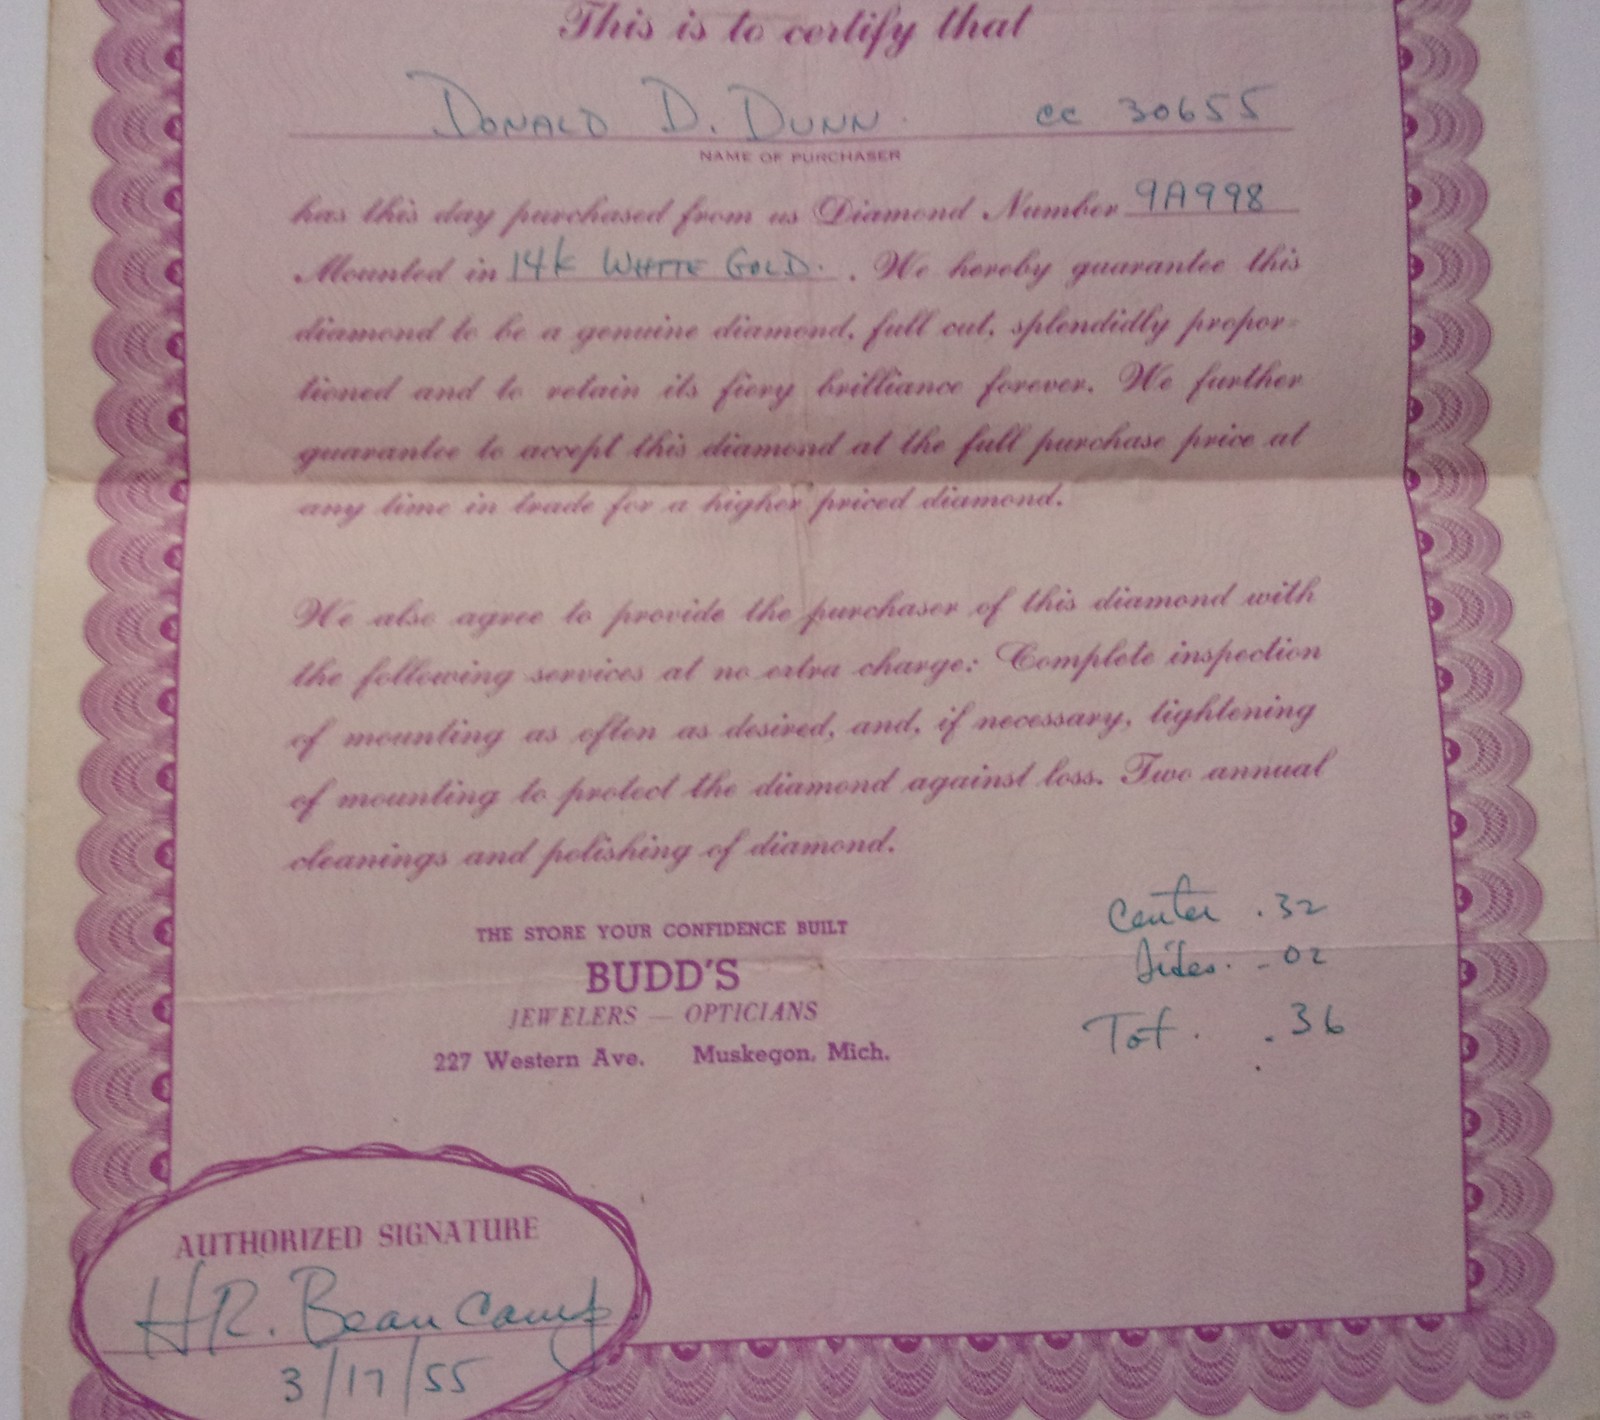 This is to certify that
DONALD D. DUNN. CC 30655
NAME OF PURCHASER
has this day purchased from us Diamond Number 9A998
Mounted in 14k WHITE GOLD. . We hereby guarantee this
diamond to be a genuine diamond, full cut, splendidly propor-
tioned and to retain its fiery brilliance forever. We further
guarantee to accept this diamond at the full purchase price at
any time in trade for a higher priced diamond.
We also agree to provide the purchaser of this diamond with
the following services at no extra charge: Complete inspection
of mounting as often as desired, and, if necessary, tightening
of mounting to protect the diamond against loss. Two annual
cleanings and polishing of diamond.
Center .32
Sides. -02
Tot. .36
THE STORE YOUR CONFIDENCE BUILT
BUDD'S
JEWELERS — OPTICIANS
227 Western Ave. Muskegon, Mich.
AUTHORIZED SIGNATURE
H.R. Beau Camp
3/17/55